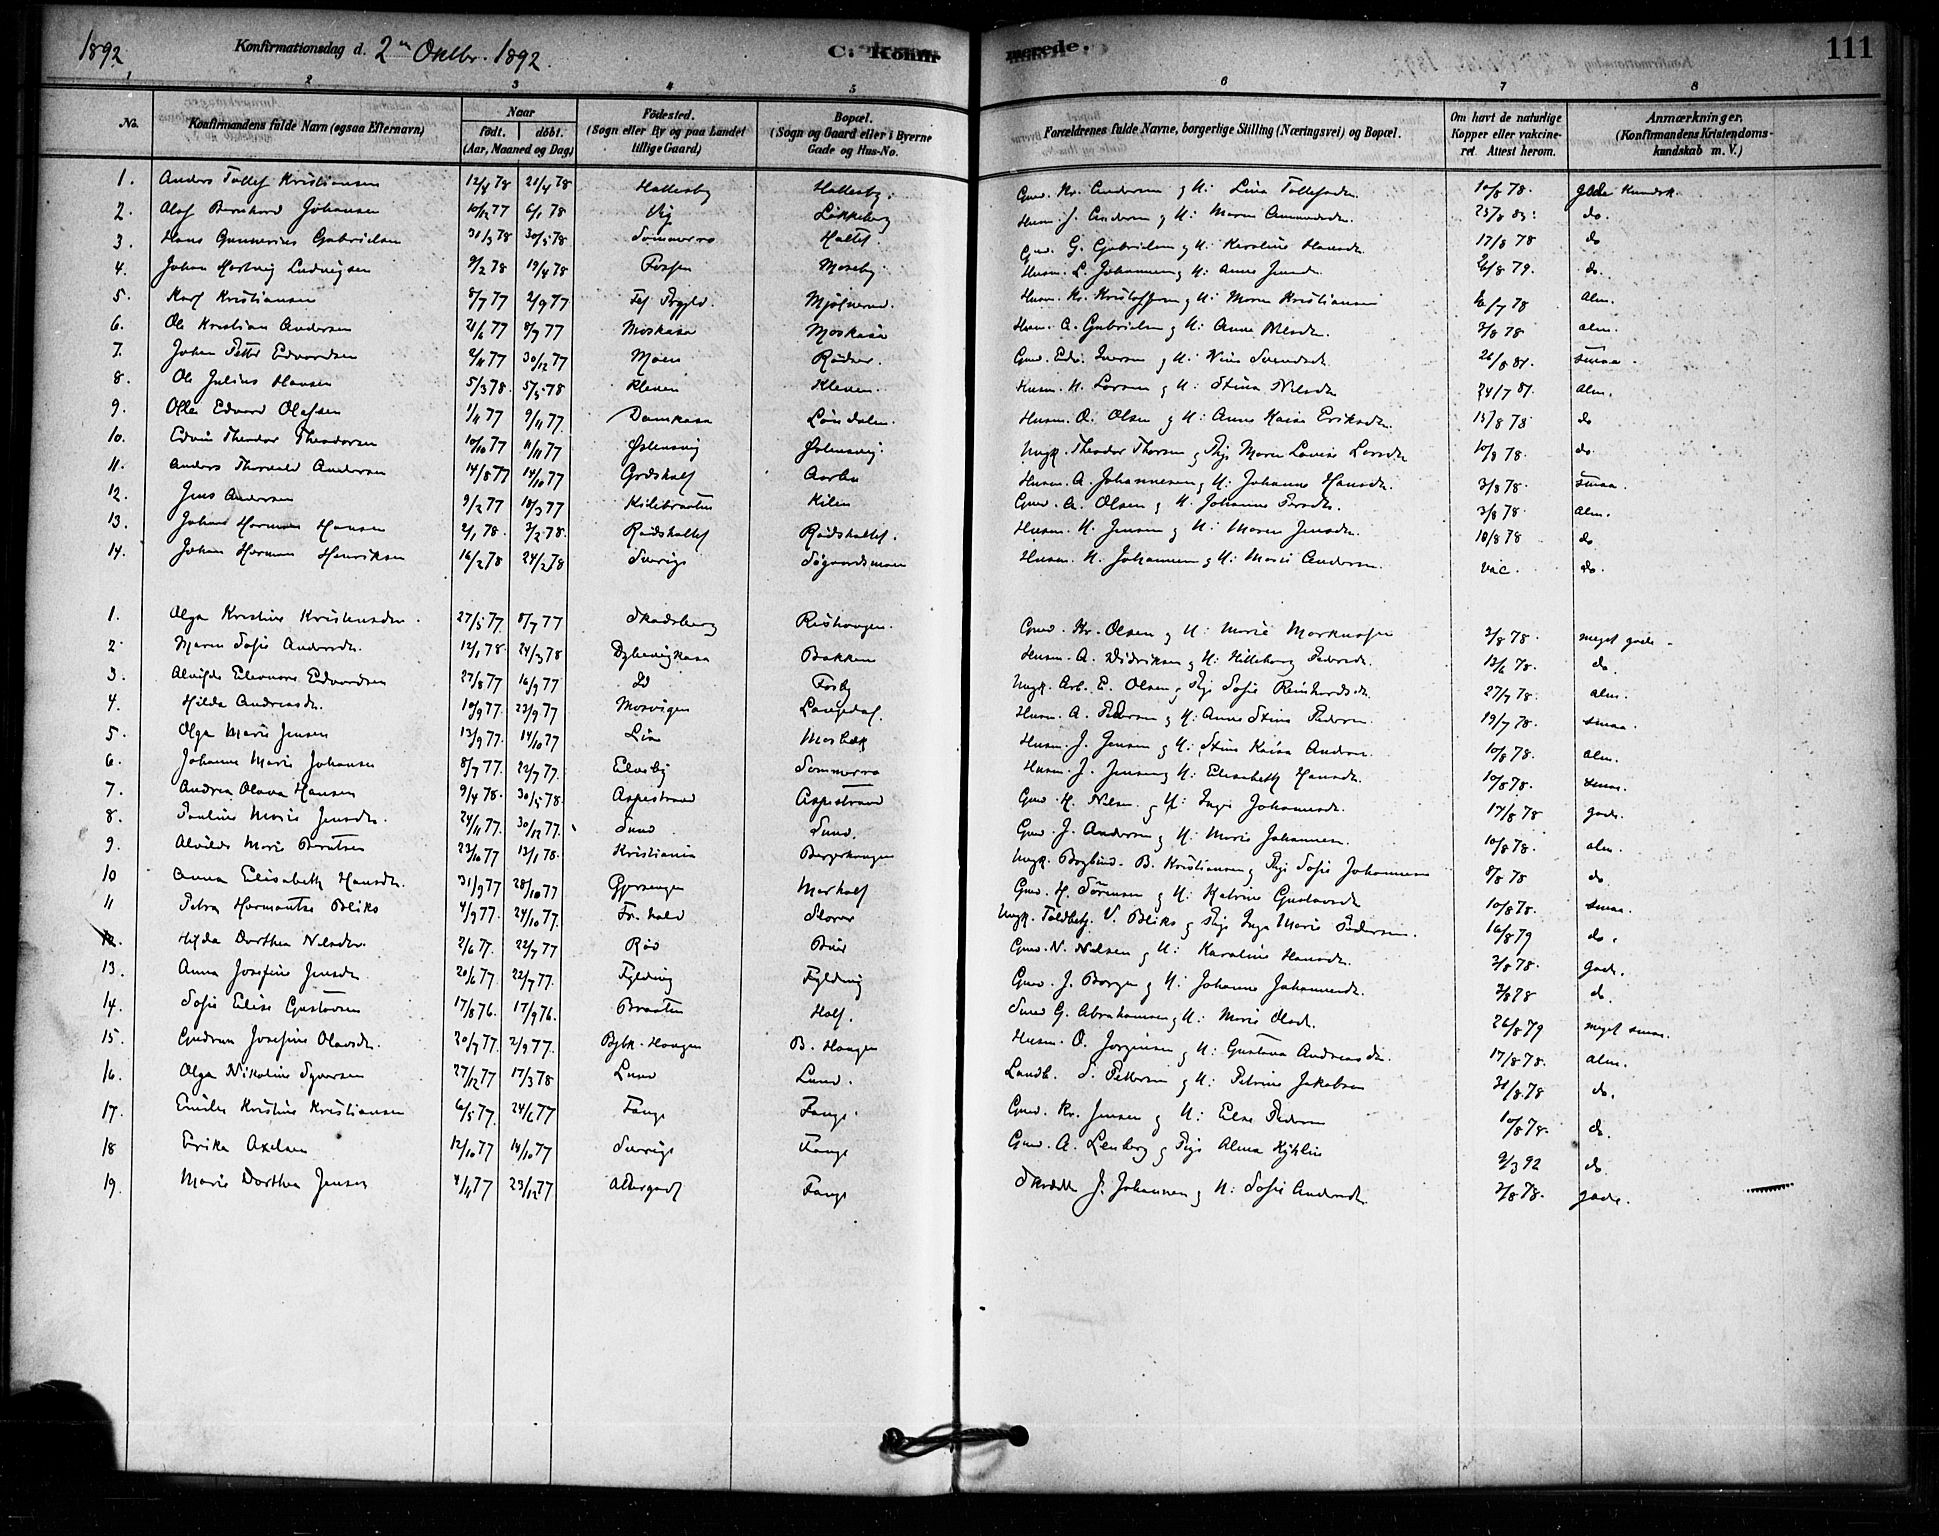 1892
Konfirmationsdag d. 2 Oktbr. 1892.
C. Konfir merede.
111
1 2 3 4 5 6 7 8
No. Konfirmandens fulde Navn (ogsaa Efternavn) Naar født. døbt. (Aar, Maaned og Dag) Fødested. (Sogn eller By og paa Landet tillige Gaard) Bopæl. (Sogn og Gaard eller i Byerne Gade og Hus-No. Forældrenes fulde Navne, borgerlige Stilling (Næringsvei) og Bopæl. Om havt de naturlige Kopper eller vakcineret. Attest herom. Anmærkninger, (Konfirmandens Kristendomskundskab m. V.)
1. Anders Tollef Kristiansen 12/4 78 21/4 78 Hallesby Hallesby. Gmd. Kr. Andersen og H: Lina Tollefsdr. 10/8 78. gode Kundsk.
2. Olaf Bernhard Johansen 10/12 77 6/1 78 Vig Løkkeberg Husm. J. Andersen og H: Maren 23/8 83. do.
3. Hans Gunnerius Gabrielsen 31/3 78 30/5 78 Sommerro Holtet. Gmd. G. Gabrielsen og H: Karoline Hansdr. 17/8 78 do
4. Johan Hartvig Ludvigsen 9/2 78 19/4 78 Fossen Moseby. Husm. L. Johannesen og H: Anne 26/8 79. do.
5. Karl Kristiansen 8/7 77 2/9 77 Husm. Kr. Kristoffersen og H: Maren Kristiansen 78 alm.
6. Ole Kristian Andersen 21/6 77 8/7 77 Moskasa Moskasa Husm. A. Gabrielsen og H: Anne Nilsdr. 3/8 78 alm.
7. Johan Petter Edvardsen 2/11 77 30/12 77 Moen Rødser. Gmd. Edv. Iversen og H: 26/8 81. smaa.
8. Ole Julius Hansen 5/3 78. 5/5 78 Kleven Kleven. Husm. H. Larsen og H: Stina Nilsdr 24/7 81. alm.
9. Olle Edvard Olafsen 1/11 77 9/11 77. Damkasa Løndalen. Husm. O. Olsen og H: Anne Kaisa Eriksdr. 13/8 78 do
10. Edvin Theodor Theodorsen 10/10 77 11/11 77 Østensvig Østensvig. Ungk. Theodor Thorsen og Pige Maren Lovise Larsdr 10/8 78. do.
11. Anders Thorvald Andersen 14/8 77 14/10 77 Aarbu Husm. A. Johannesen og H: Johanne Hansdr. 3/8 78. smaa.
12. Jens Andersen 9/2 77 18/3 77 Kilebraaten Kilen Gmd. A. Olsen og H. Johanne 3/8 78 alm.
13. Johan Herman Hansen 2/1 78. 3/2 78. Rødshaltet Rødshaltet. Husm. H. Jensen og H: Maren Jensdr. 10/8 78 do
14. Johan Herman Henriksen 16/2 78 24/2 78 Sverige Søgaardsmoen Husm. H. Johannesen og H: Marie Andersen. vac. do.
1. Olga Kristine Kristensdr. 27/5 77. 8/7 77 Skadsberg Rishaugen. Gmd. Kr. Olsen og H: Marie 3/8 78. meget gode.
2. Maren Sofie Andersdr. 12/1 78. 24/3 78 Dybevigkasa Bakken Husm. A. Didriksen og H: Hilleborg Pedersdr. 13/6 78. do.
3. Alvilde Eleonore Edvardsen 27/8 77 16/9 77 Id Torsby Ungk. Arb. E. Olsen og Pige Sofie Reinhardsdr. 27/7 78. alm.
4. Hilda Andreasdr. 10/9 77. 23/9 77 Mosvigen Langedal. Husm. A. Pedersen og H: Anne Stine Pedersen. 19/7 78. smaa.
5. Olga Marie Jensen 13/9 77. 14/10 77 Lia Mosbæk Husm. J. Jensen og H: Stine Kaisa Andersen. 10/8 78. alm.
6. Johanne Marie Johansen 8/7 77. 22/7 77. Elvesby Sommerro Husm. J. Jensen og H: Elisabeth Hansdr. 10/8 78. smaa.
7. Andrea Olava Hansen 9/4 78. 30/5 78. Aspestrand Aspestrand Gmd. H. Nilsen og H: Inger Johannesdr. 17/8 78 gode.
8. Pauline Marie Jensdr. 24/11 77. 30/12 77. Sund Sund. Gmd. J. Andersen og H: Marie Johannesen. 10/8 78. alm.
9. Alvilde Marie Berntsen 23/10 77 13/1 78. Kristiania Borgerhaugen Ungk. Bogbind. B. Kristiansen og Pige Sofie Johannesen 8/8 78 do.
10 Anna Elisabeth Hansdr. 31/9 77 28/10 77 Gjersengen Gmd. H. Sørensen og H: Katrine Gustavsdr 10/8 78. smaa.
11 Petra Hermantse Bliks 4/9 77. 24/10 77. Fr. hald Storor Ungk. Toldbetj. V. Bliks og Pige Inga Marie Pedersen. 16/8 79 do.
12. Hilda Dorthea Nilsdr. 2/6 77. 22/7 77 Rød Gmd. N. Nilsen og H: Karoline Hansdr. 3/8 78. gode.
13. Anna Josefine Jensdr. 20/6 77. 22/7 77. Fylding Fylding Gmd. J. Borgen og H: Johanne Johannesdr. 3/8 78 do.
14. Sofie Elise Gustavsen 17/8 76. 17/9 76. Braaten Holt. Smed G. Abrahamsen og H: Marie Olsdr. 26/8 79 meget smaa.
15. Gudrun Josefine Olavsdr. 20/7 77. 2/9 77. Bgbk. Haugen B. Haugen Husm. O. Jørgensen og H: Gustava Andreasdr. 17/8 78. alm.
16. Olga Nikoline Syversen 27/12 77 17/3 78 Lund Lund. Landh. S. Pettersen og H: Petrine Jakobsen 31/8 78 do.
17. Emilie Kristine Kristiansen 6/5 77. 24/6 77 Tange Tange. Gmd. Kr. Jensen og H: Else Pedersen 10/8 78. do.
18 Erika Axelsen 12/10 77 14/10 77 Sverige Tange Gmd. A. Lenberg og Pige Alma 9/3 92 do.
19. Marie Dorthea Jensen 4/11 77 23/12 77 Tange Skrædder J. Johannesen og H: Sofie Andersdr. 3/8 78. gode.